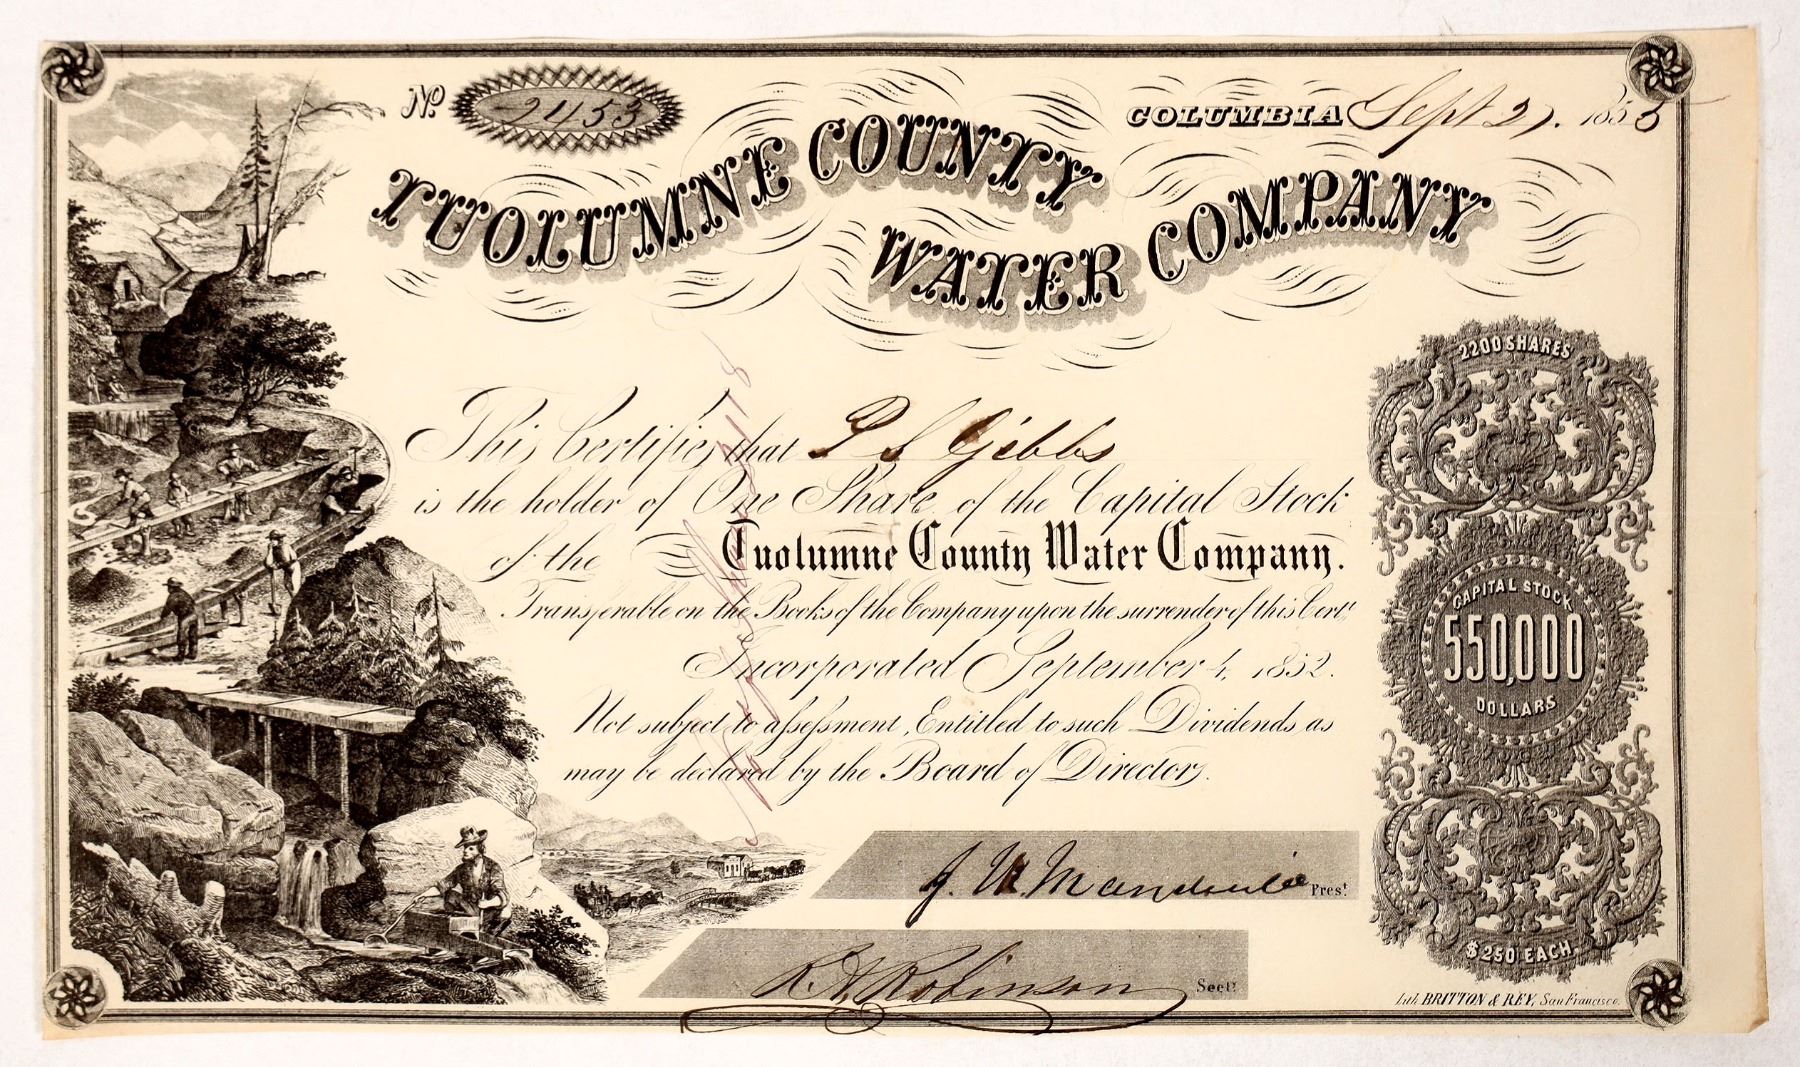 No 2453
COLUMBIA Sept 27. 1855
TUOLUMNE COUNTY
WATER COMPANY
This Certifies that P S Gibbs
is the holder of One Share of the Capital Stock
of the Tuolumne County Water Company.
Transferable on the Books of the Company upon the surrender of this Cert.
Incorporated September 4, 1852.
Not subject to assessment, Entitled to such Dividends as
may be declared by the Board of Directors.
2200 SHARES
CAPITAL STOCK
550,000
DOLLARS
$250 EACH
Prest.
R A Robinson Secty.
Lith. BRITTON & REY, San Francisco.